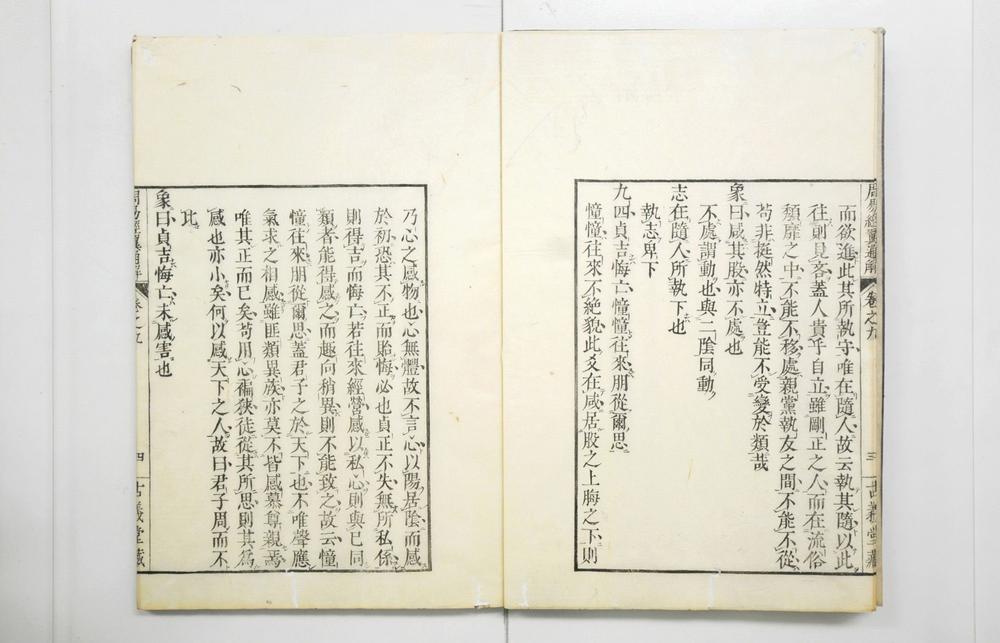 周易經翼通解 卷之九 三 古義堂藏
而欲進此其所執守唯在隨人故云執其隨以此
往則見吝蓋人貴乎自立雖剛正之人而在流俗
頽靡之中不能不移處親黨執友之間不能不從
苟非挺然特立豈能不受變於類哉
象曰咸其股亦不處也
不處謂動也與二陰同動
志在隨人所執下也
執志卑下
九四貞吉悔亡憧憧往來朋從爾思
憧憧往來不絶貌此爻在咸居股之上脢之下則
乃心之感物也心無軆故不言心以陽居陰而感
於初恐其不正而貽悔必也貞正不失無所私係
則得吉而悔亡若往來經營感以私心則與已同
類者能得感之而趣向稍異則不能致之故云憧
憧往來朋從爾思蓋君子之於天下也不唯聲應
氣求之相感雖匪類異族亦莫不皆感慕尊親焉
唯其正而已矣苟用心褊狹徒從其所思則其爲
感也亦小矣何以感天下之人故曰君子周而不
比
象曰貞吉悔亡未感害也
周易經翼通解 卷之九 四 古義堂藏